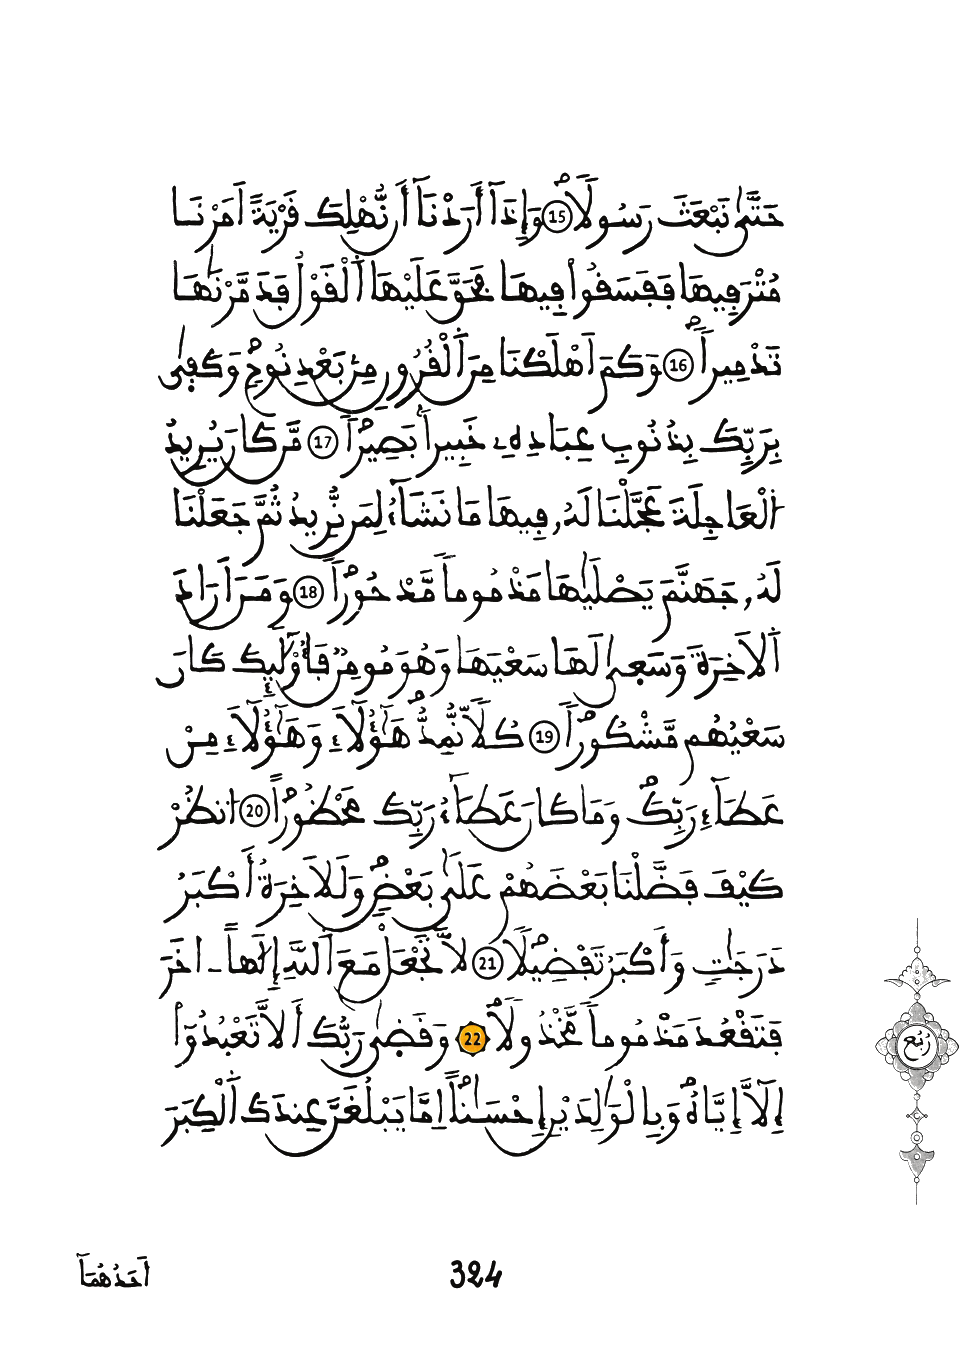 حَتَّىٰ نَبْعَثَ رَسُولاٗ 15 وَإِذَآ أَرَدْنَآ أَن نُّهْلِكَ قَرْيَةً اَمَرْنَا
مُتْرَفِيهَا فَفَسَقُواْ فِيهَا فَحَقَّ عَلَيْهَا اَ۬لْقَوْلُ فَدَمَّرْنَٰهَا
تَدْمِيراٗ 16 وَكَمَ اَهْلَكْنَا مِنَ اَ۬لْقُرُونِ مِنۢ بَعْدِ نُوحٖ وَكَفَىٰ
بِرَبِّكَ بِذُنُوبِ عِبَادِهِۦ خَبِيراَۢ بَصِيراٗ 17 مَّن كَانَ يُرِيدُ
اُ۬لْعَاجِلَةَ عَجَّلْنَا لَهُۥ فِيهَا مَا نَشَآءُ لِمَن نُّرِيدُ ثُمَّ جَعَلْنَا
لَهُۥ جَهَنَّمَ يَصْلَيٰهَا مَذْمُوماٗ مَّدْحُوراٗ 18 وَمَنَ اَرَادَ
اَ۬لَاخِرَةَ وَسَعَىٰ لَهَا سَعْيَهَا وَهُوَ مُومِنٞ فَأُوْلَٰٓئِكَ كَانَ
سَعْيُهُم مَّشْكُوراٗ 19 كُلّاٗ نُّمِدُّ هَٰٓؤُلَآءِ وَهَٰٓؤُلَآءِ مِنْ
عَطَآءِ رَبِّكَۖ وَمَا كَانَ عَطَآءُ رَبِّكَ مَحْظُوراًۖ 20 اُ۟نظُرْ
كَيْفَ فَضَّلْنَا بَعْضَهُمْ عَلَىٰ بَعْضٖۖ وَلَلَاخِرَةُ أَكْبَرُ
دَرَجَٰتٖ وَأَكْبَرُ تَفْضِيلاٗۖ 21 لَّا تَجْعَلْ مَعَ اَ۬للَّهِ إِلَٰهاً اٰخَرَ
فَتَقْعُدَ مَذْمُوماٗ مَّخْذُولاٗۖ 22 وَقَضَىٰ رَبُّكَ أَلَّا تَعْبُدُوٓاْ
إِلَّآ إِيَّاهُۖ وَبِالْوَٰلِدَيْنِ إِحْسَٰناًۖ اِمَّا يَبْلُغَنَّ عِندَكَ اَ۬لْكِبَرَ
رُبُع
324
اَحَدُهُمَآ